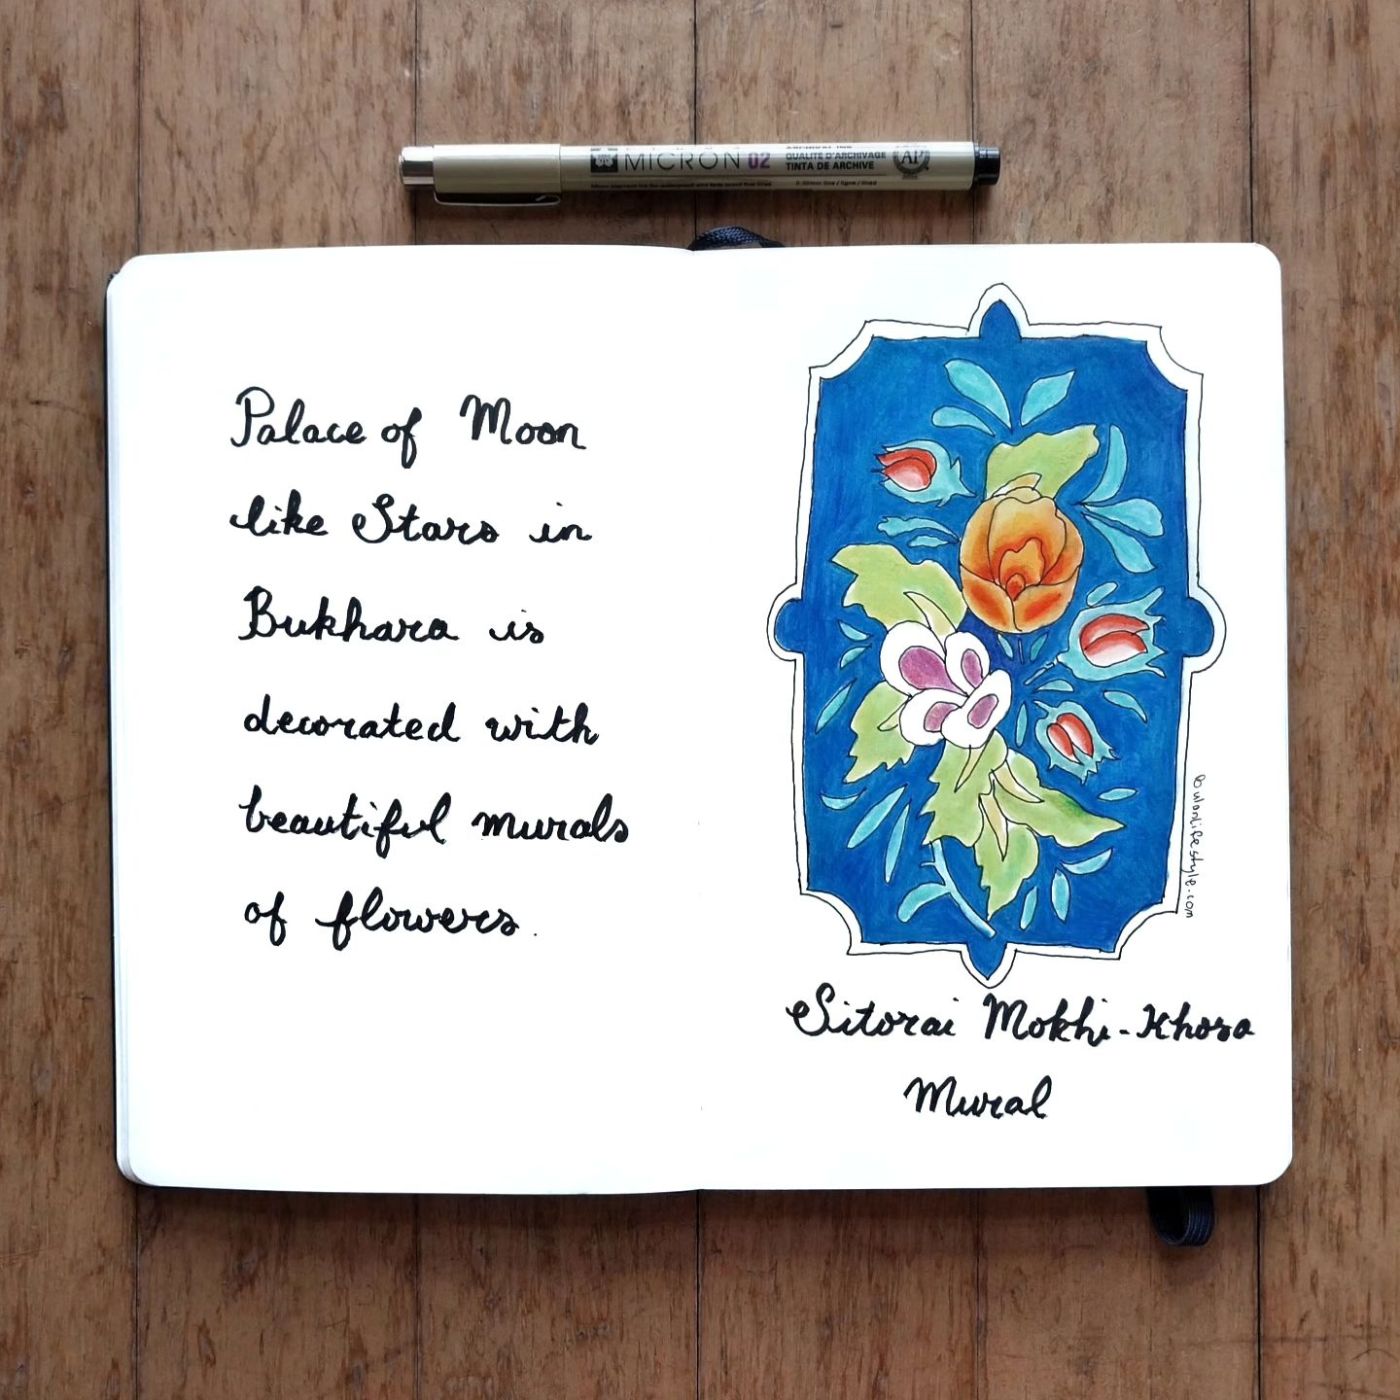 MICRON 02
QUALITÉ D'ARCHIVAGE
TINTA DE ARCHIVE
AP
Palace of Moon
like Stars in
Bukhara is
decorated with
beautiful murals
of flowers.
Bulonlifestyle.com
Sitorai Mokhi-Khosa
Mural